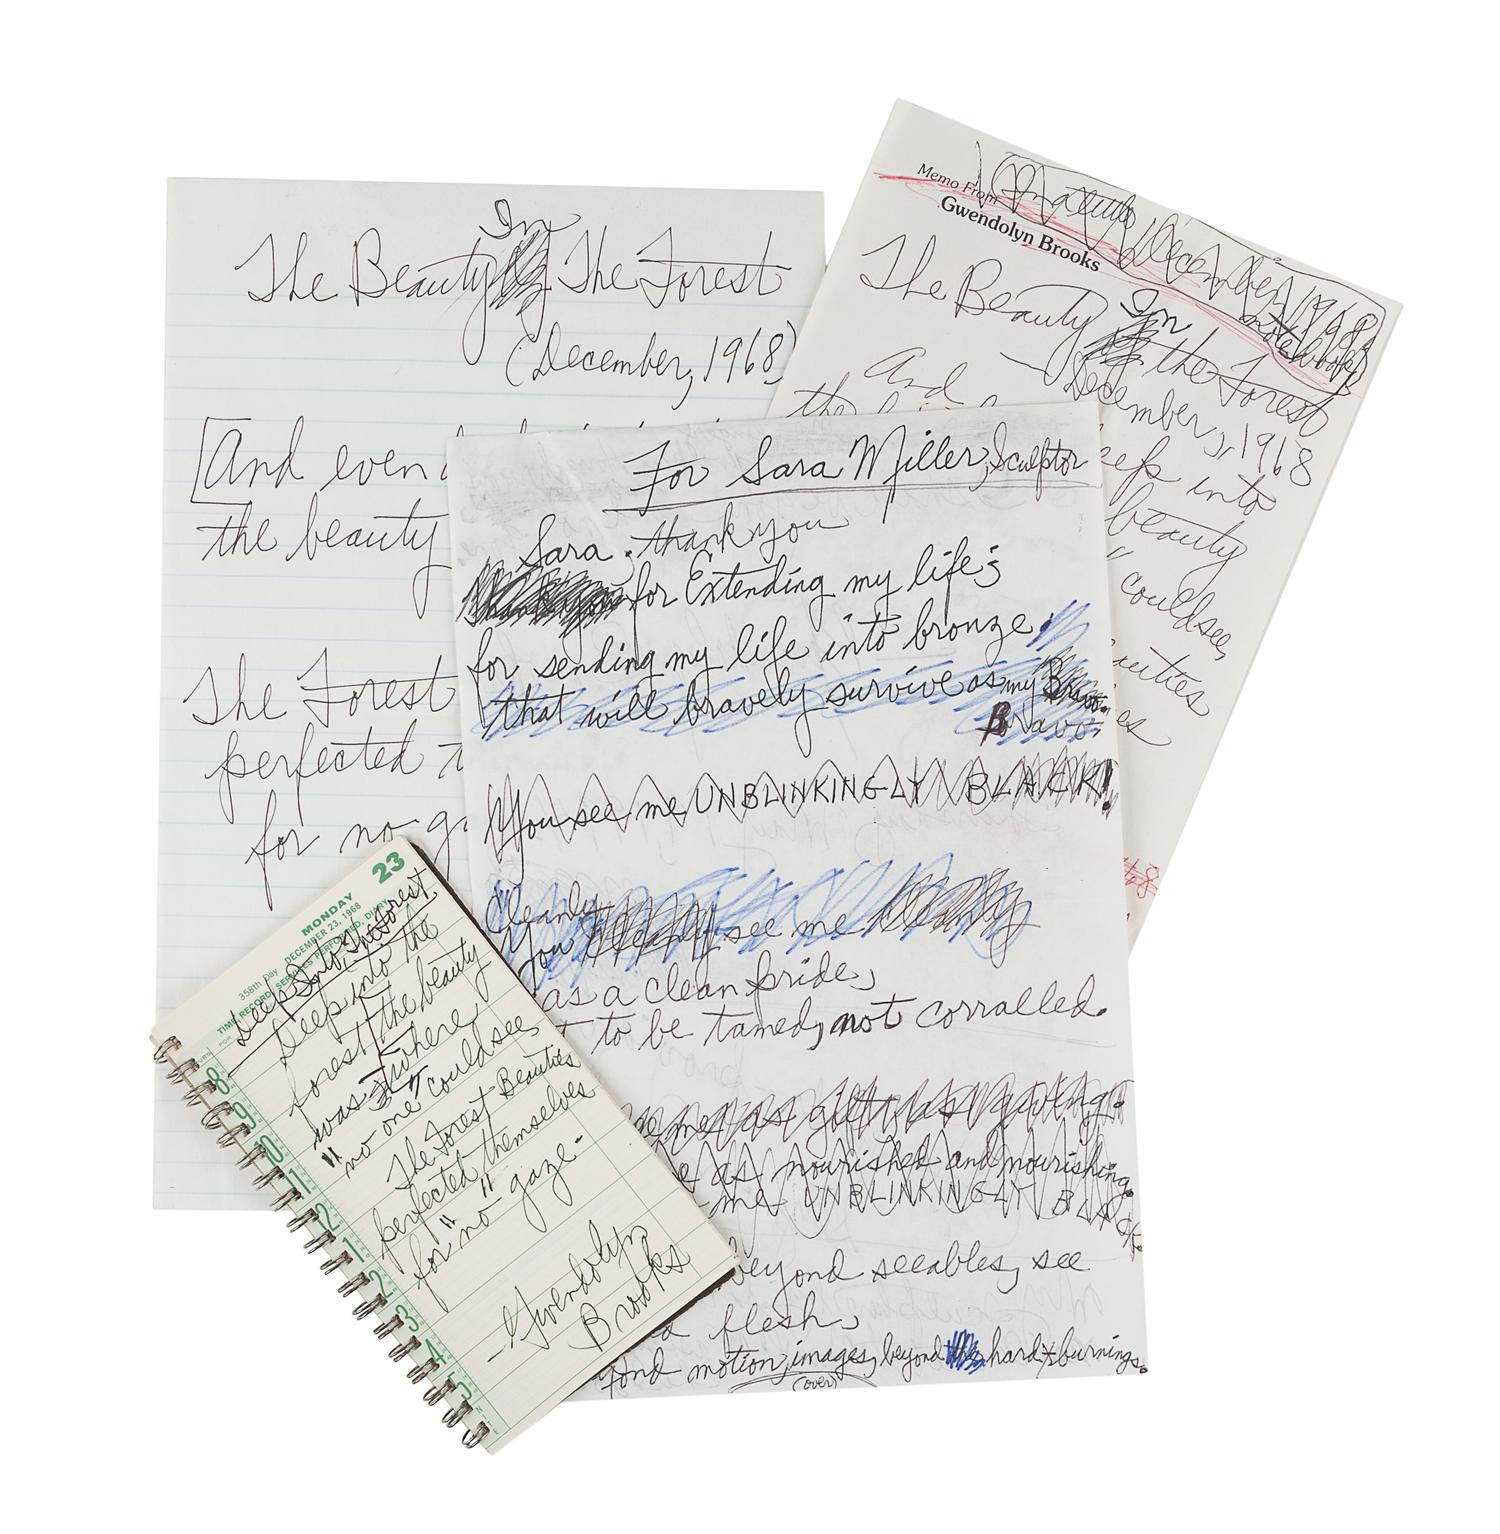 The Beauty In The Forest
(December, 1968)
[And even
the beauty
The Forest
perfected
for no
Memo From
Gwendolyn Brooks
December 1968
notebook
The Beauty In the Forest
December, 1968
And
the
into
beauty
" could see,
For Sara Miller, Sculptor
Sara, thank you
for Extending my life;
for sending my life into bronze.
that will bravely survive as my
Bravo.
You see me UNBLINKINGLY BLACK!
Cleanly
You cleanly see me cleanly
as a clean pride,
to be tamed, not corralled.
me as nourished and nourishing.
me UNBLINKINGLY BLACK.
beyond seeables, see
flesh,
motion, images, beyond the hard burnings.
(over)
MONDAY 23
358th Day DECEMBER 23, 1968
TIME RECORD, SERVICES PERFORMED, DIARY
Deep Into The Forest
Deep into the
forest / the beauty
was where
"no one" could see,
The Forest Beauties
perfected themselves
for "no" gaze.
—Gwendolyn
Brooks
8
9
10
11
12
1
2
3
4
5